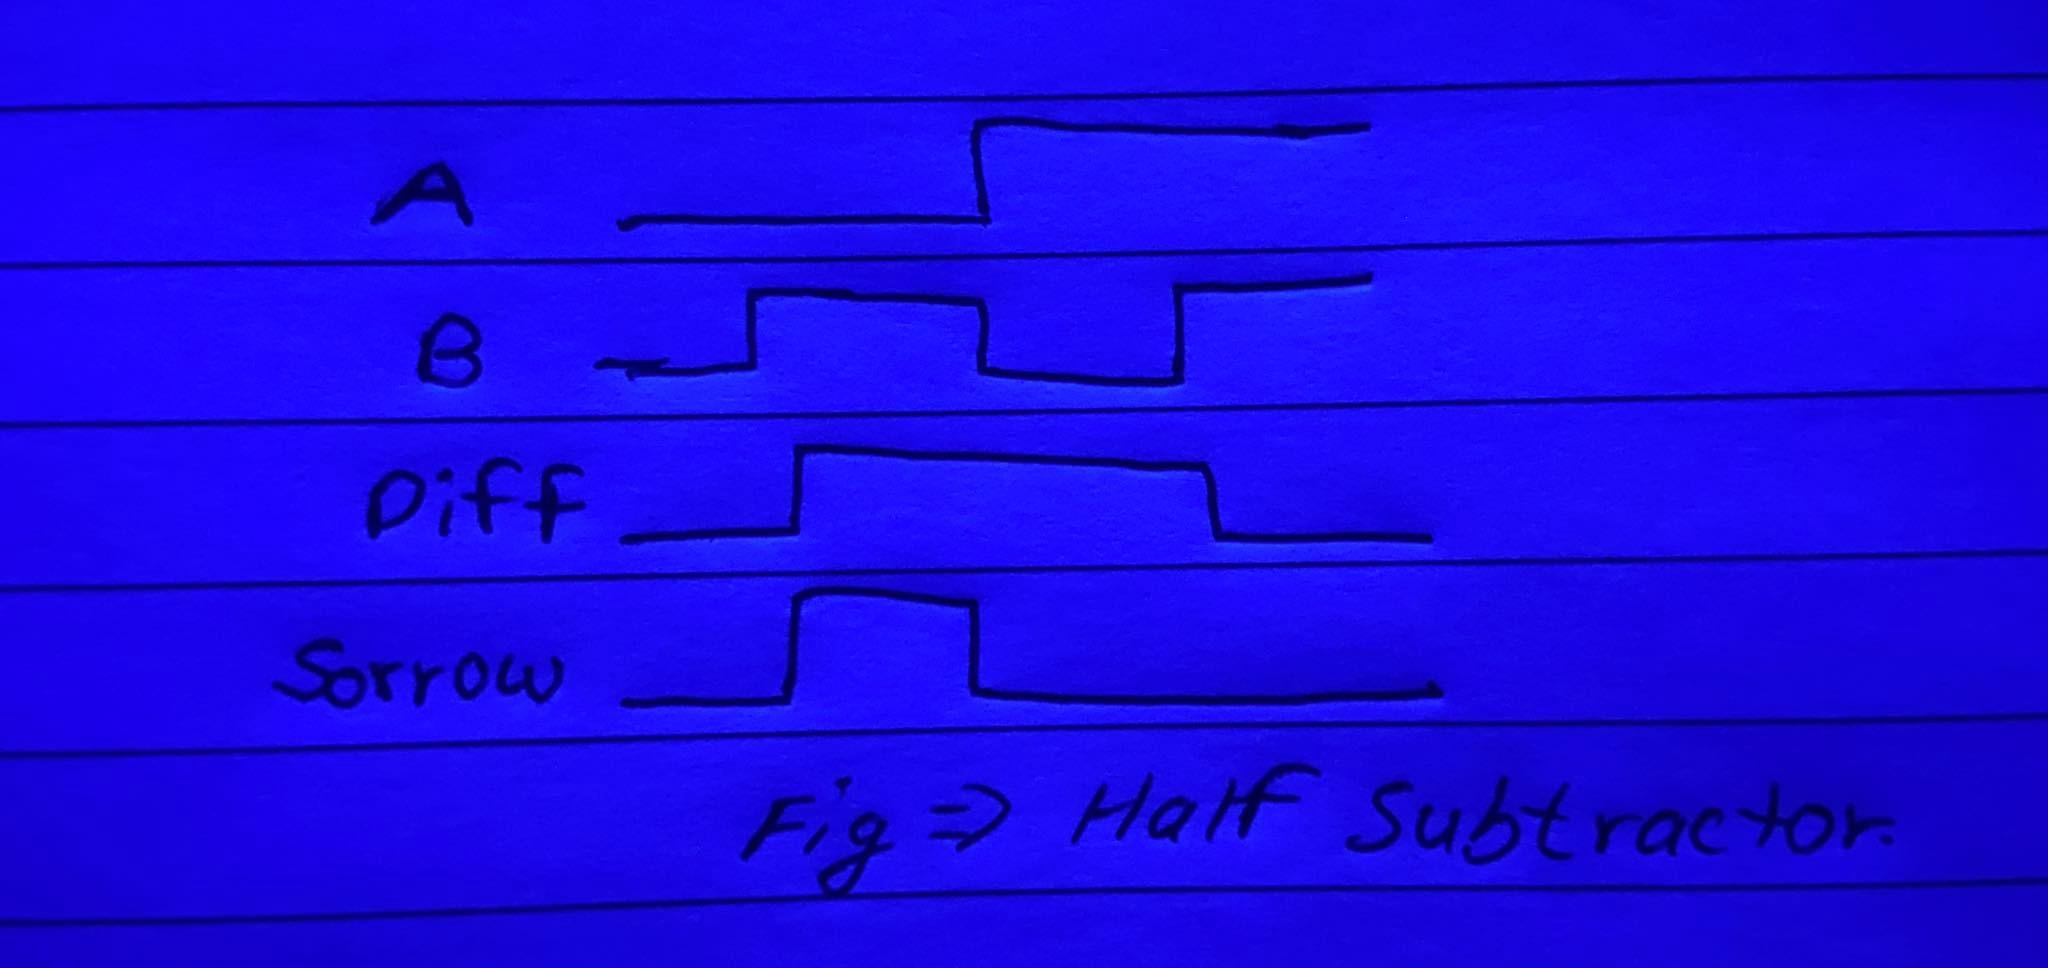 A
B
Diff
Sorrow
Fig ⇒ Half Subtractor.